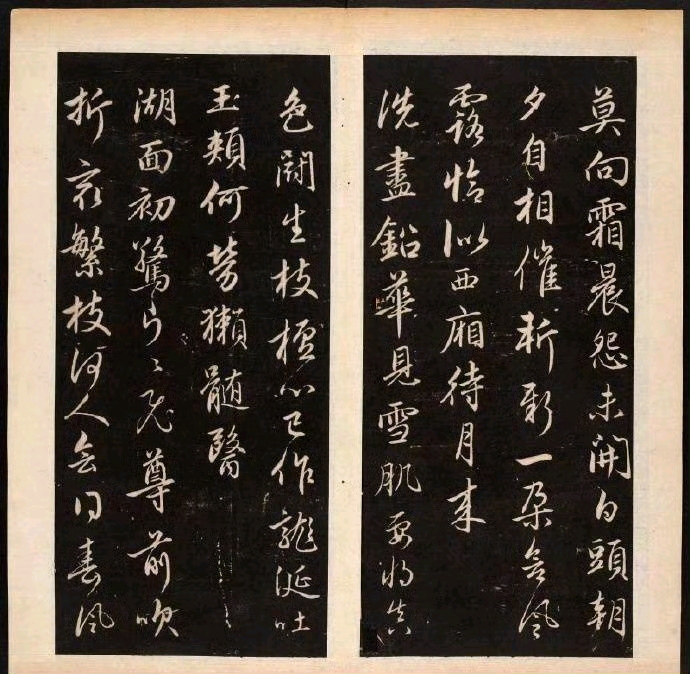 莫向霜晨怨未開白頭朝
夕自相催斬新一朵含風
露恰似西廂待月來
洗盡鉛華見雪肌要將真
色鬭生枝檀心已作龍涎吐
玉頰何勞獺髓醫
湖面初驚片〻飛尊前吹
折㝡繁枝何人會得春風